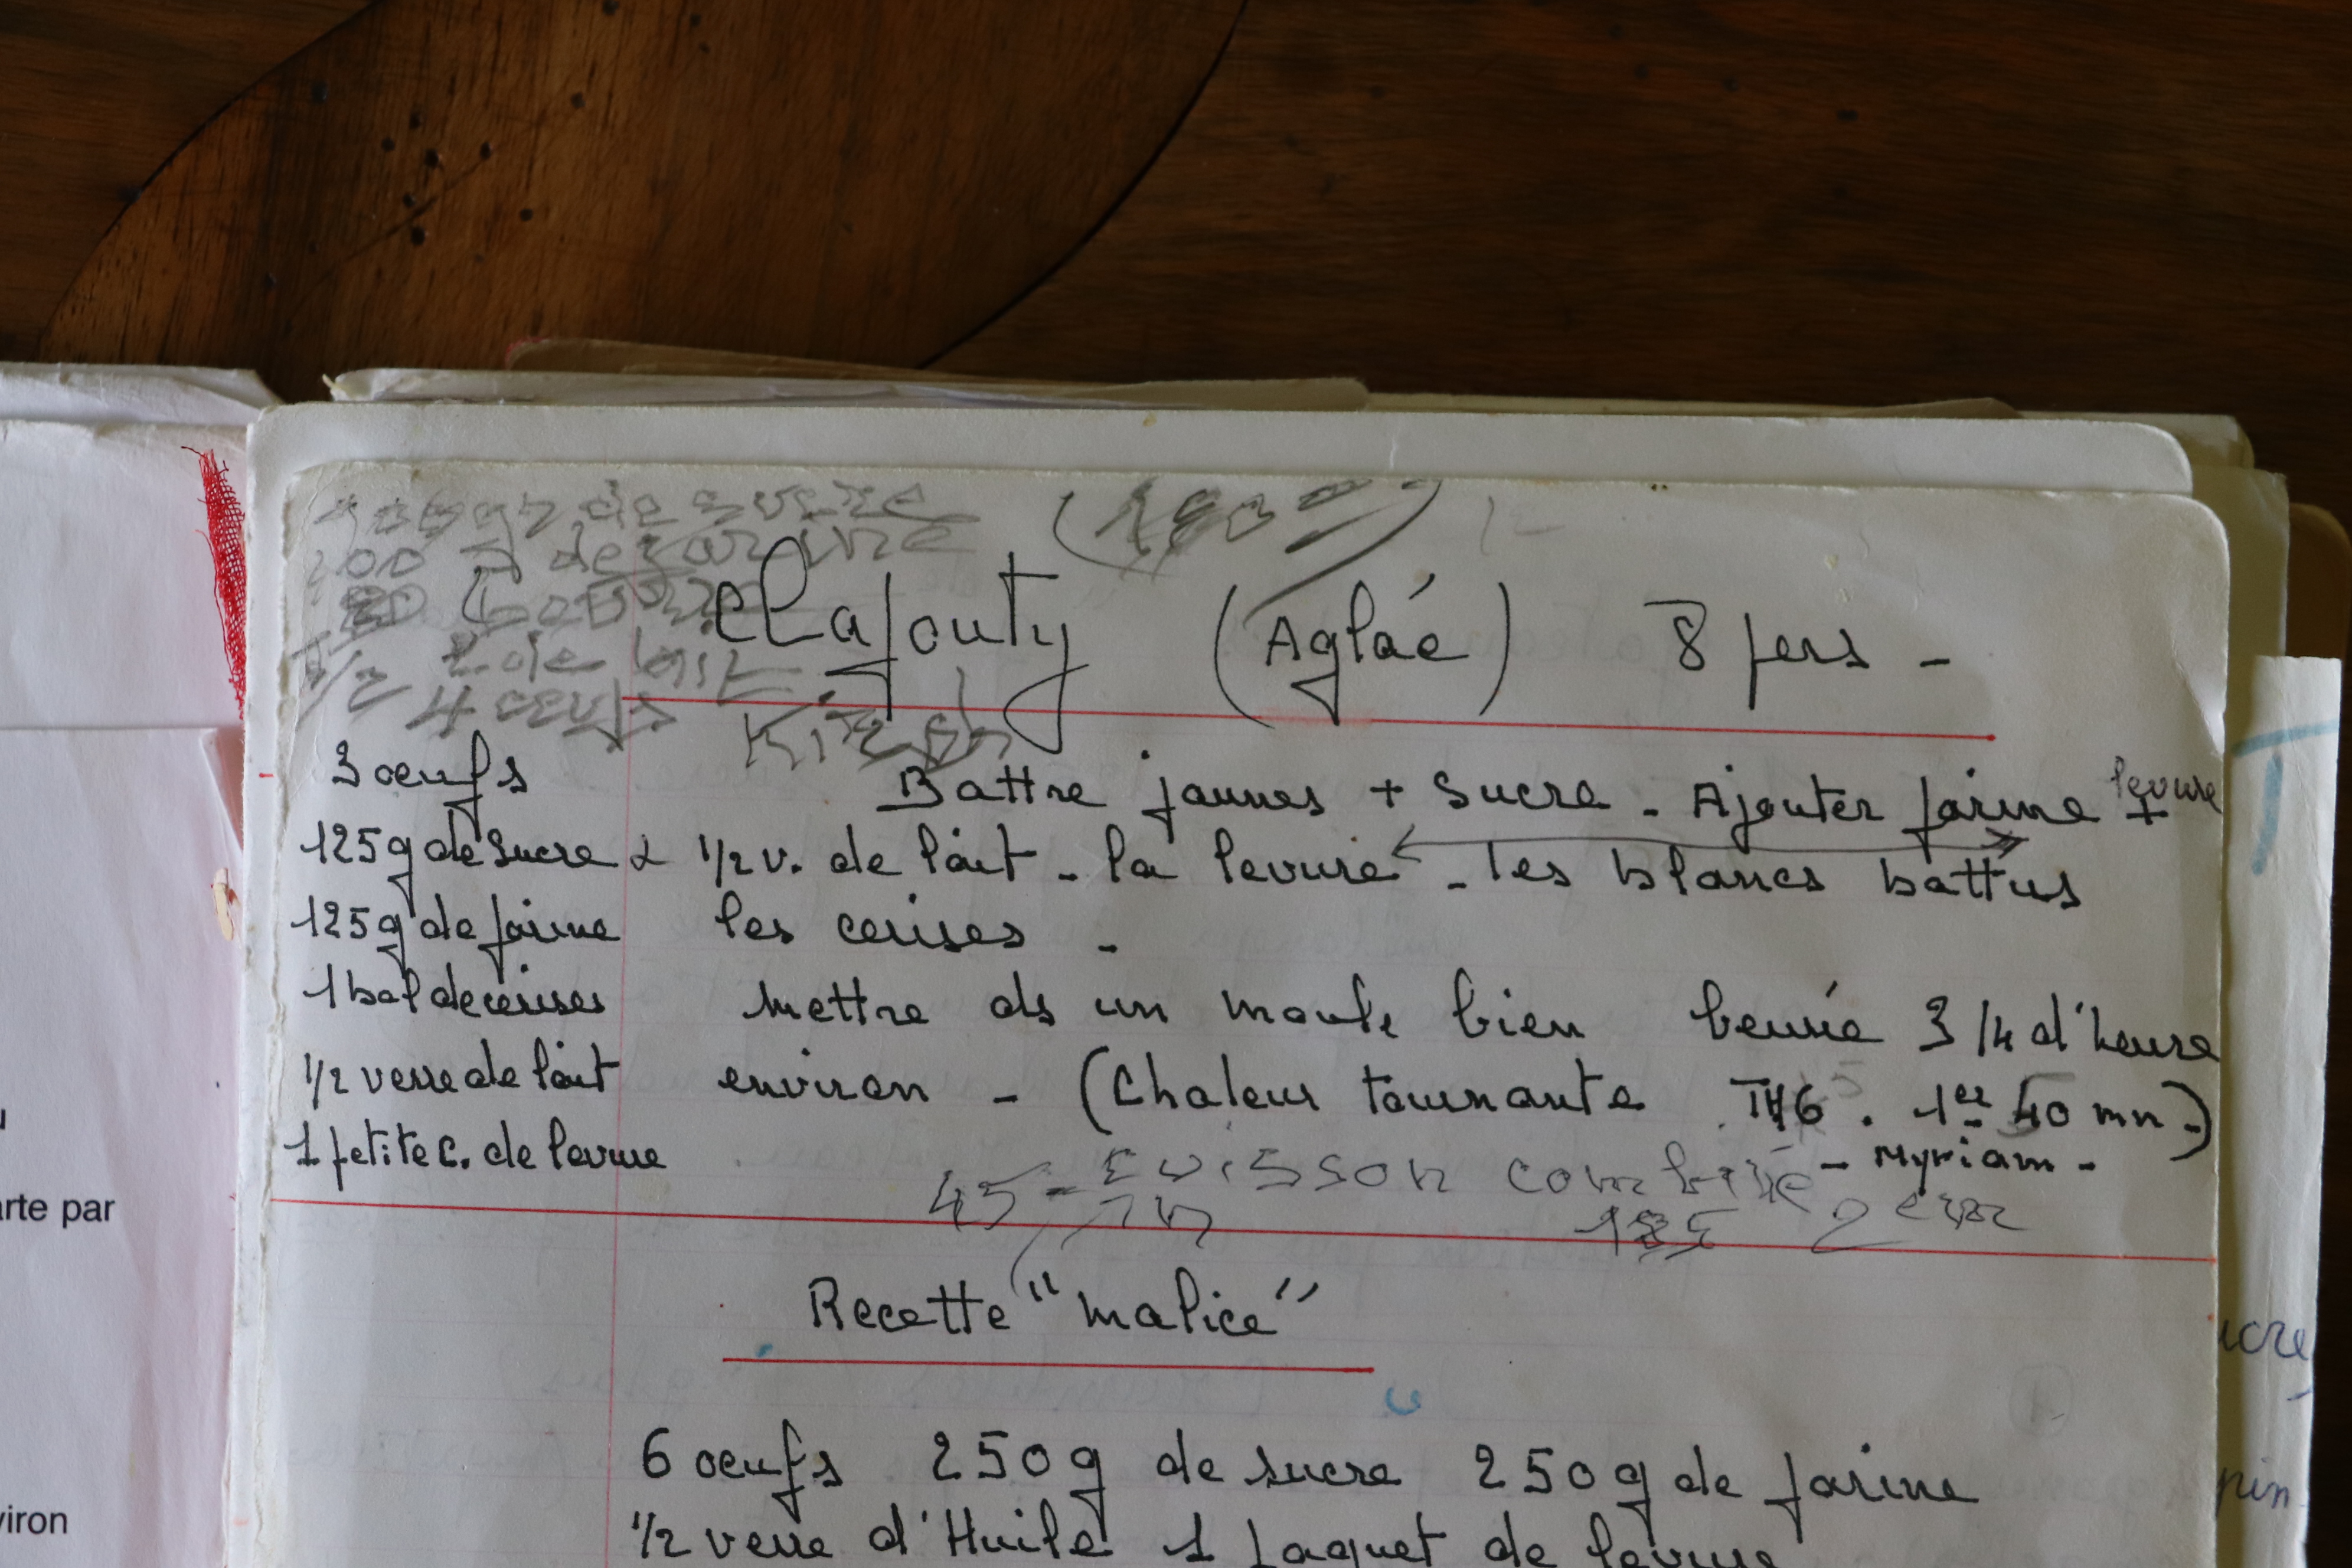 de sucre
200 g de farine
1/2 l de lait
4 oeufs
Kirsch
(180°)
Clafouty (Aglaé) 8 pers -
3 oeufs
125g de sucre
125g de farine
1 bol de cerises
1/2 verre de lait
1 petite c. de levure
Battre jaunes + sucre - Ajouter farine + levure
1/2 v. de lait - la levure - les blancs battus
les cerises -
Mettre ds un moule bien beurré 3/4 d'heure
environ - (Chaleur tournante TH6 . 1er 40 mn -)
- Myriam -
45 cuisson combiné
185 2em
Recette "malice"
6 oeufs 250g de sucre 250g de farine
1/2 verre d'Huile 1 paquet de levure
arte par
viron
ucre
pin